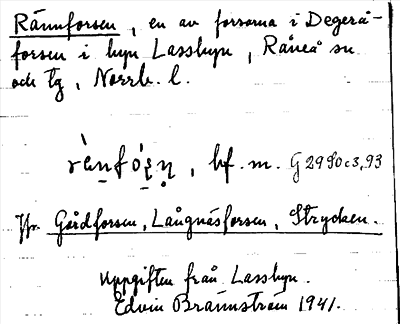 Rännforsen, en av forsarna i Degerå-
forsen i byn Lassbyn, Råneå sn
och tg, Norrb. l.
bf. m. G 2980c3,93
Jfr Gårdforsen, Långnäsforsen, Strycken.
Uppgiften från Lassbyn.
Edvin Brännström 1941.